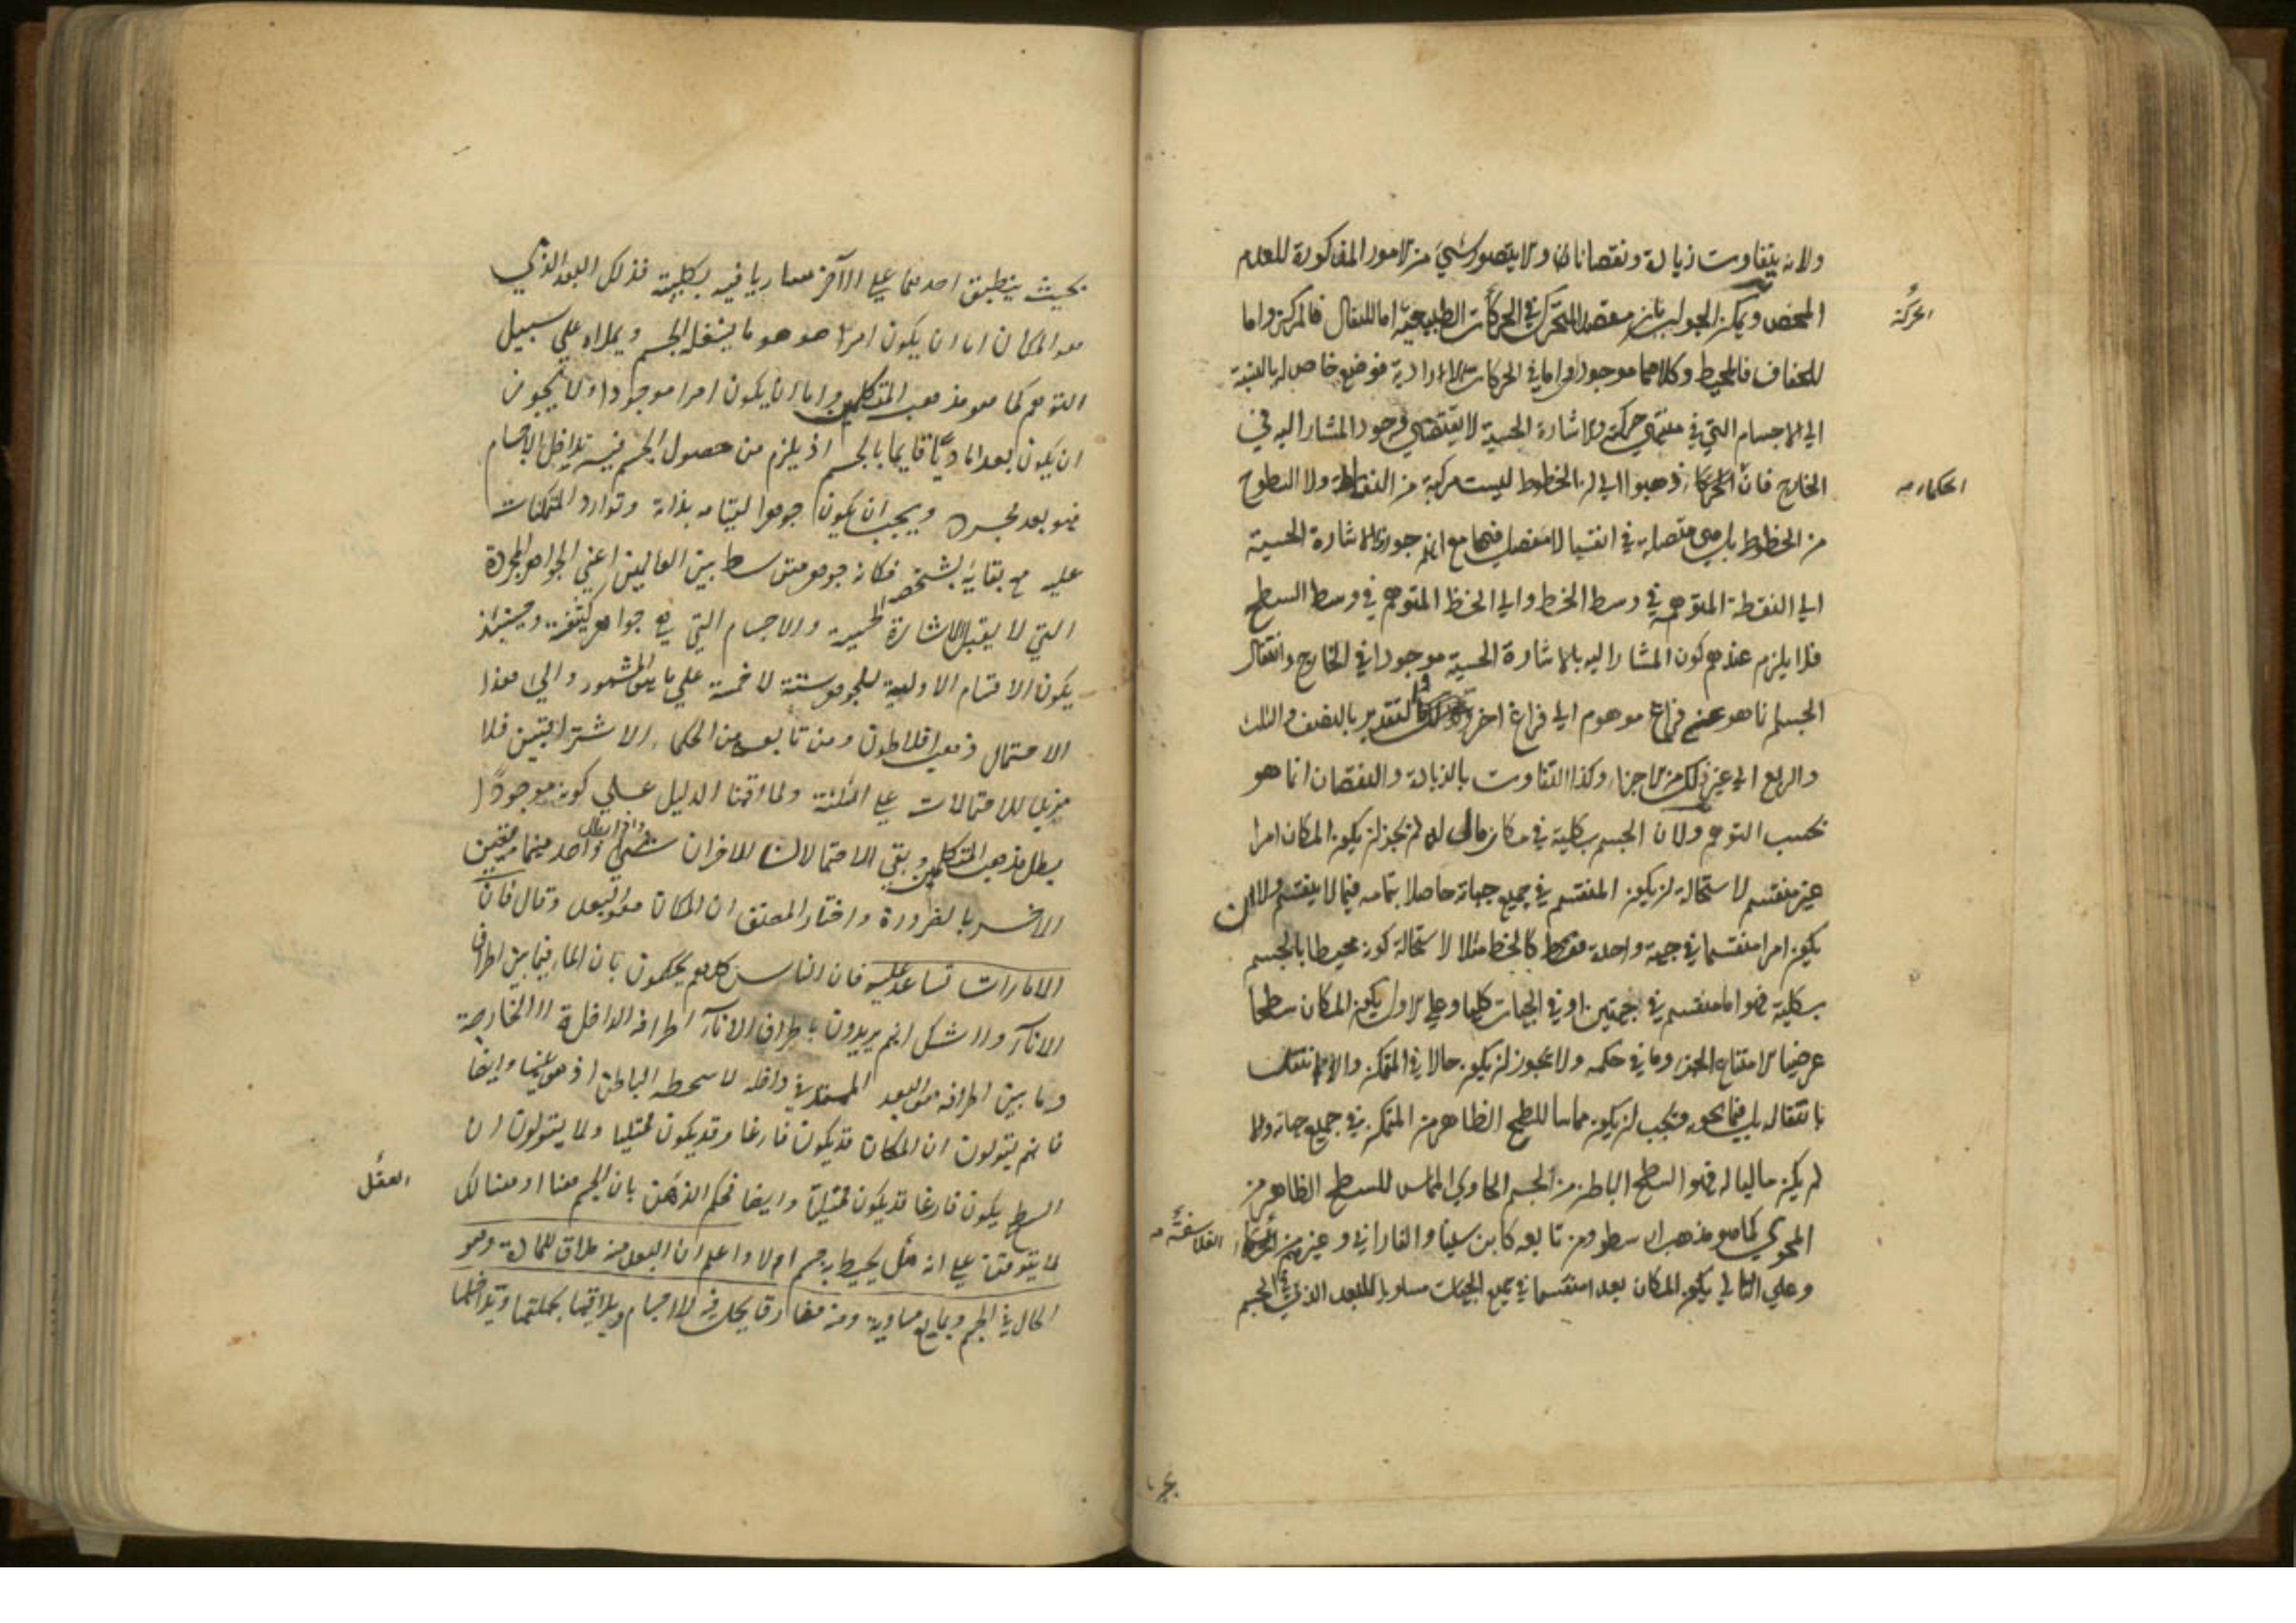 ولانه يتفاوت زيادة ونقصانا ولا يتصور شيئ من الامور المذكورة للعدم
المحض ويمكن الجواب بان مقصد المتحرك في الحركات الطبيعية اما للثقال فالمركز واما
الحركة
للخفاف فالمحيط وكلاهما موجود واما في الحركات الارادية فموضع خاص له بالنسبة
الي الاجسام التي في منتهي حركته والاشارة الحسية لا يقتضي وجود المشار اليه في
الخارج فان الحكماء ذهبوا الي ان الخطوط ليست مركبة من النقاط ولا السطوح
الحكماء
من الخطوط بل هي متصلة في انفسها لا مفصل فيها مع انهم جوزوا الاشارة الحسية
الي النقطة المتوهمة في وسط الخط والي الخط المتوهم في وسط السطح
فلا يلزم عندهم كون المشار اليه بالاشارة الحسية موجودا في الخارج وانتقال
الجسم انما هو عن فراغ موهوم الي فراغ اخر وكذا التقدير بالنصف والثلث
والربع الي غير ذلك من الاجزاء وكذا التفاوت بالزيادة والنقصان انما هو
بحسب التوهم ولان الجسم بكلية في مكان مالى له لم يجز ان يكون المكان امرا
غير منقسم لاستحالة ان يكون المنقسم في جميع جهاته حاصلا بتمامه فيما لا ينقسم ولا ان
يكون امرا منقسما في جهة واحدة فقط كالخط مثلا لاستحالة كونه محيطا بالجسم
بكلية فهو اما منقسم في جهتين او في الجهات كلها وعلي الاول يكون المكان سطحا
عرضيا لامتناع الجزء وما في حكمه ولا يجوز ان يكون حالا في المتمكن والا لانتقل
بانتقاله بل فيما يحويه ويجب ان يكون مماسا للسطح الظاهر من المتمكن في جميع جهاته والا
لم يكن ماليا له فهو السطح الباطن من الجسم الحاوي المماس للسطح الظاهر من
المحوي كما هو مذهب ارسطو ومن تابعه كابن سينا والفارابي وغيرهم من
الفلاسفة
وعلي الثاني يكون المكان بعدا منقسما في جميع الجهات مساويا للبعد الذي في الجسم
بحيث ينطبق احدهما علي الآخر ساريا فيه بكلية فذلك البعد الذي
هو المكان اما ان يكون امرا هو هو ما يشغله الجسم ويملاه علي سبيل
التوهم كما هو مذهب المتكلمين واما ان يكون امرا موجودا ولا يجوز
ان يكون بعدا ماديا قايما بالجسم اذ يلزم من حصول الجسم فيه تداخل الاجسام
فهو بعد مجرد ويجب ان يكون جوهرا لقيامه بذاته وتوارد المتمكنات
عليه مع بقائه بشخصه فكانه جوهر متوسط بين العالمين اعني الجواهر المجردة
التي لا يقبل الاشارة الحسية والاجسام التي هي جواهر كثيفة وحينئذ
يكون الاقسام الاولية للجوهر ستة لا خمسة علي ما هو المشهور والي هذا
الاحتمال ذهب افلاطون ومن تابعه من الحكماء الاشراقيين فلا
مزيد للاحتمالات علي الثلثة ولما اقمنا الدليل علي كونه موجودا
بطل مذهب المتكلمين وبقي الاحتمالان الاخران واحد منهما
الاخر بالضرورة واختار المصنف ان المكان هو البعد وقال فان
الامارات تساعد عليه فان الناس كلهم يحكمون بان الماء فيما بين اطراف
الاناء ولا شك انهم يريدون باطراف الاناء اطرافه الداخلة لا الخارجة
وما بين اطرافه هو البعد الممتد في داخله لا سطحه الباطن وايضا
فانهم يقولون ان المكان قد يكون فارغا وقد يكون ممتليا ولا يقولون ان
السطح يكون فارغا وقد يكون ممتليا وايضا فحكم الذهن بان الجسم هنا او هنالك
العقل
لا يتوقف علي انه هل يحيط به جسم ام لا واعلم ان البعد منه ملاق للمادة وهو
الحال في الجسم ويمانع مساويه ومنه مفارق يحل فيه الاجسام ويلاقيها بجملتها ويداخلها